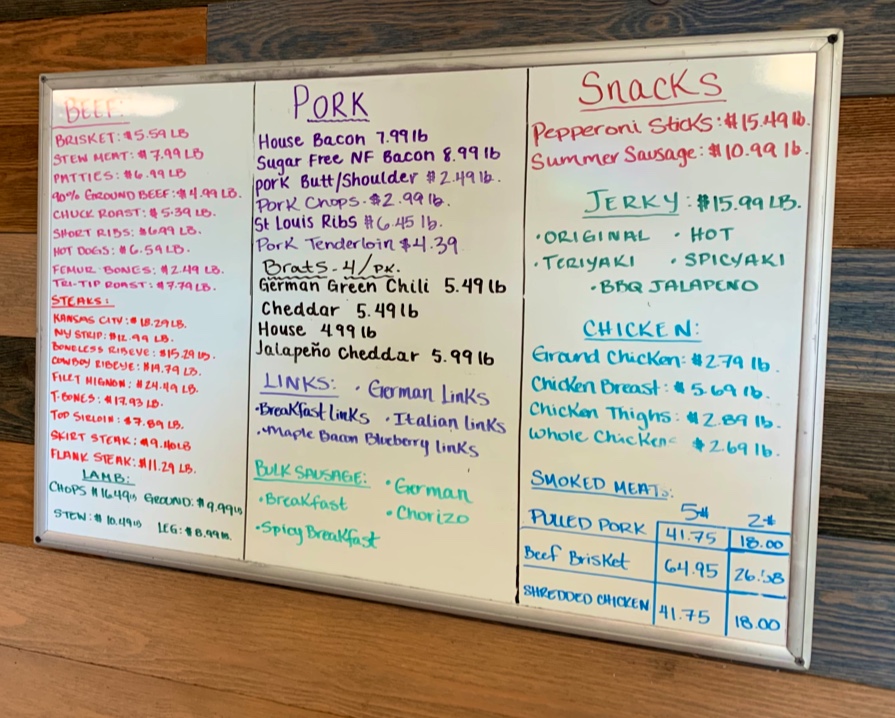 BEEF:
BRISKET: $5.59 LB
STEW MEAT: $7.99 LB
PATTIES: $6.99 LB
90% GROUND BEEF: $4.99 LB.
CHUCK ROAST: $5.39 LB.
SHORT RIBS: $6.99 LB.
HOT DOGS: $6.59 LB.
FEMUR BONES: $2.49 LB.
TRI-TIP ROAST: $7.79 LB.
STEAKS:
KANSAS CITY: LB.
NY STRIP: $12.99 LB.
BONELESS RIBEYE: $15.29 LB.
COWBOY RIBEYE: $14.79 LB.
FILET MIGNON: $24.49 LB.
T-BONES: $17.93 LB.
TOP SIRLOIN: $7.89 LB.
SKIRT STEAK: LB
FLANK STEAK: $11.29 LB.
LAMB:
CHOPS $16.49 lb GROUND: $9.99 lb
STEW: $10.49 lb LEG: $8.99 lb.
PORK
House Bacon 7.99 lb
Sugar Free NF Bacon 8.99 lb
pork Butt/Shoulder $2.49 lb.
Pork Chops - $2.99 lb.
St Louis Ribs $6.45 lb.
Pork Tenderloin $4.39
Brats - 4/pk.
German Green Chili 5.49 lb
Cheddar 5.49 lb
House 4.99 lb
Jalapeño Cheddar 5.99 lb
LINKS: • German Links
• Breakfast links • Italian links
• Maple Bacon Blueberry links
BULK SAUSAGE: • German
• Breakfast • Chorizo
• Spicy Breakfast
Snacks
Pepperoni Sticks: $15.49 lb.
Summer Sausage: $10.99 lb.
JERKY: $15.99 LB.
• ORIGINAL • HOT
• TERIYAKI • SPICYAKI
• BBQ JALAPENO
CHICKEN:
Ground Chicken: $2.79 lb.
Chicken Breast: $5.69 lb.
Chicken Thighs: $2.89 lb.
Whole Chicken: $2.69 lb.
SMOKED MEATS:
5# 2#
PULLED PORK 41.75 18.00
Beef Brisket 64.95 26.58
SHREDDED CHICKEN 41.75 18.00